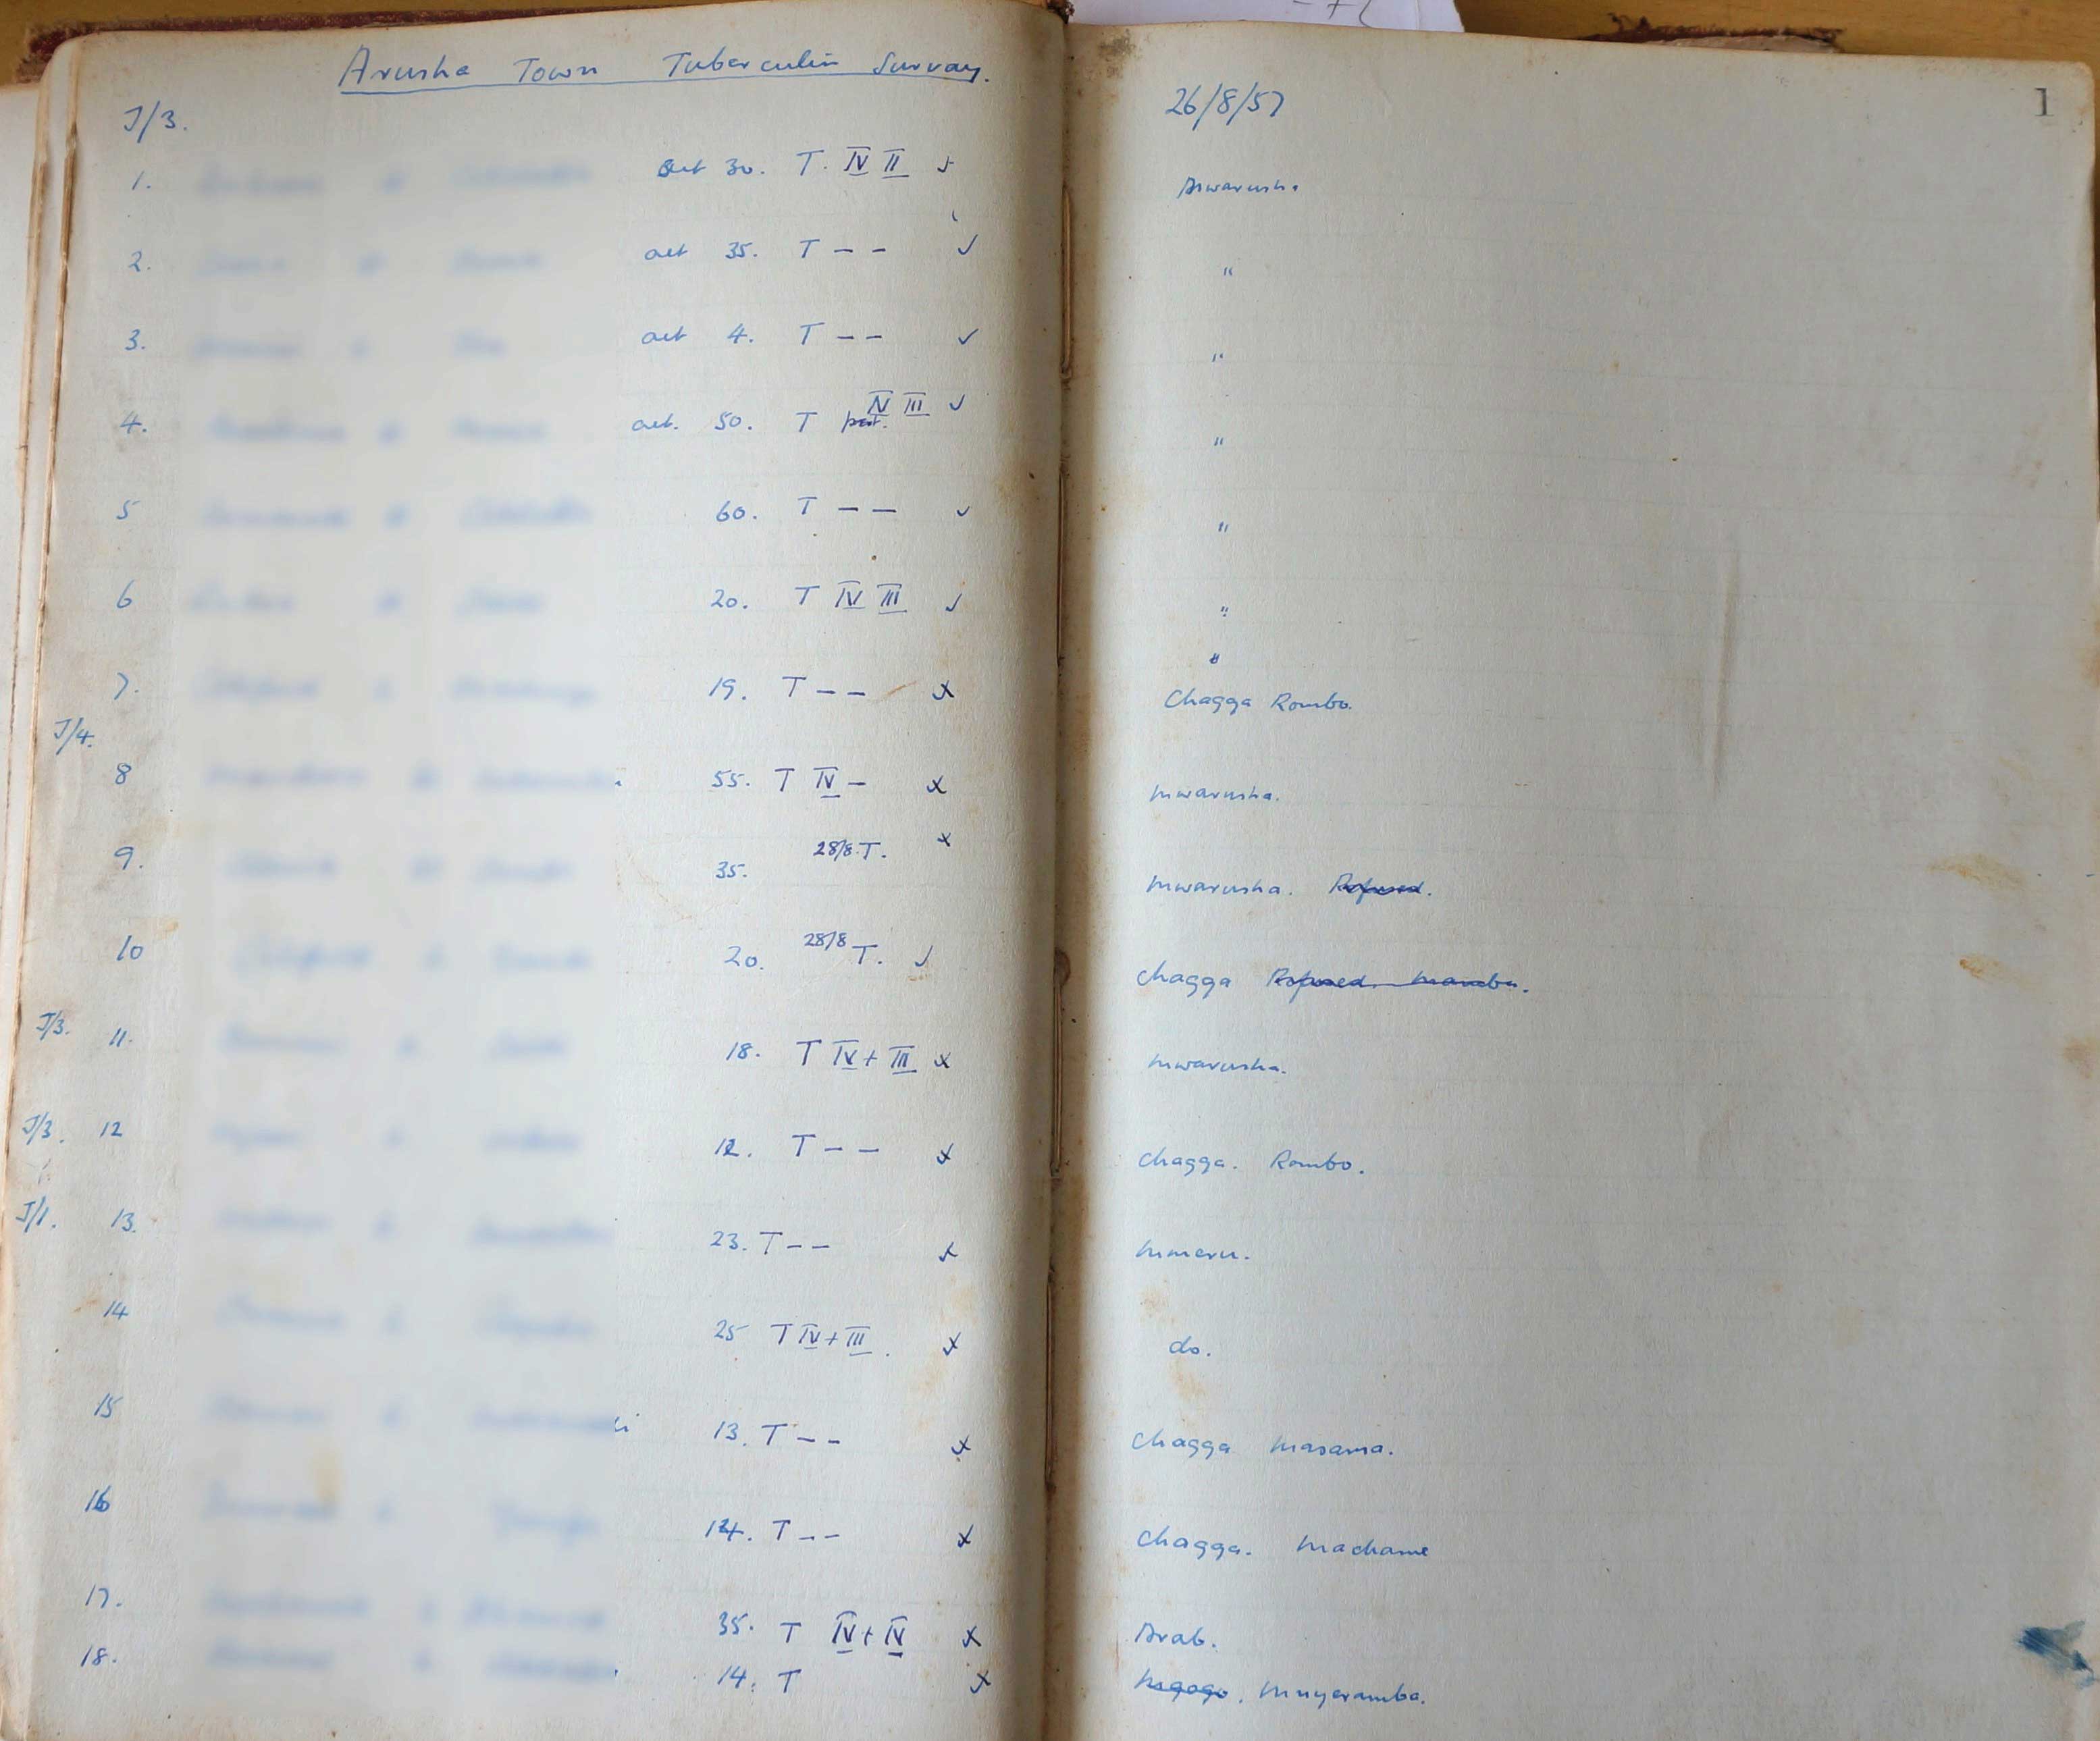 Arusha Town Tuberculin Survey.
26/8/57
1
J/3.
1. aet 30. T. IV II ✓ Mwarusha
2. aet 35. T – – ✓ "
3. aet 4. T – – ✓ "
4. aet. 50. T IV III ✓ "
5 60. T – – ✓ "
6 20. T IV III ✓ "
"
7. 19. T – – x Chagga Rombo.
J/4.
8 55. T IV – x Mwarusha.
9. 35. 28/8 T. x Mwarusha. Refused.
10 20. 28/8 T. ✓ Chagga Refused.
J/3. 11. 18. T IV + III x Mwarusha.
J/3. 12 12. T – – x Chagga. Rombo.
J/1. 13. 23. T – – x Mmeru.
14 25 T IV + III. x do.
15 13. T – – x Chagga Masama.
16 14. T – – x Chagga. Machame
17. 35. T IV + IV x Arab.
18. 14. T x Mgogo. Mnyeramba.